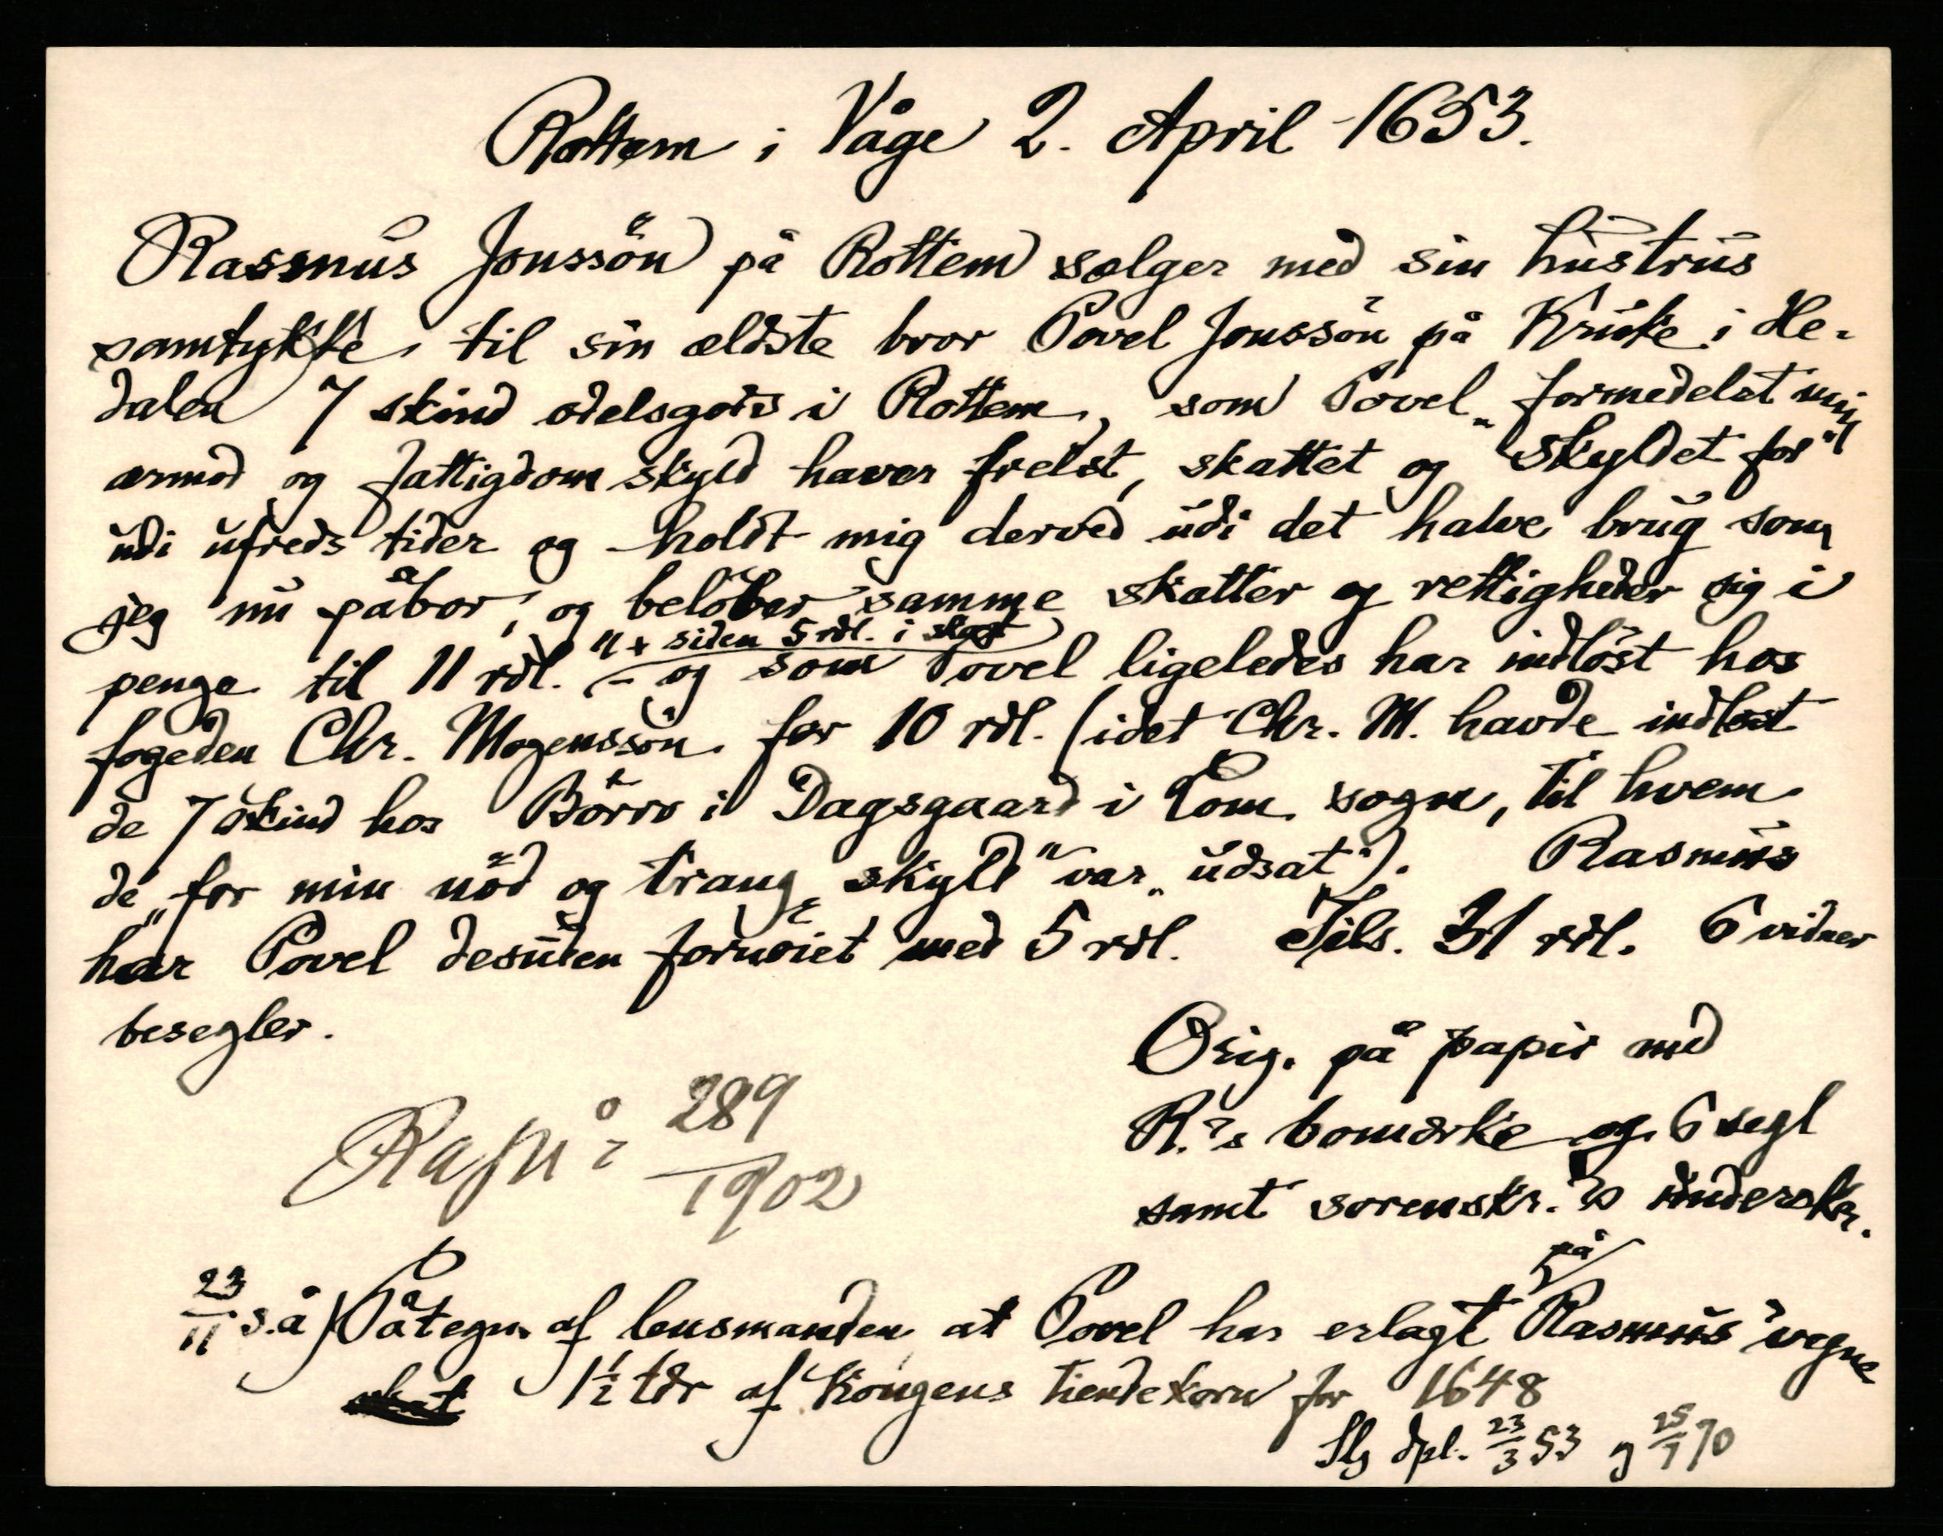 Rottem i Våge 2. April 1653.
Rasmus Jonssön på Rottem sælger med sin hustrus
samtykke til sin ældste bror Povel Jonssön på Kruke i He-
dalen 7 skind odelsgods i Rottem, som Povel „formedelst min
armod og fattigdom skyld haver frelst, skattet og skyldet for"
udi ufreds tider og holdt mig derved udi det halve brug som
jeg nu påbor, og belöber samme skatter og rettigheder sig i
penge til 11 rdl." + siden 5 rdl. i skat
– og som Povel ligeledes har indlöst hos
fogeden Chr. Mogenssön for 10 rdl. (idet Chr. M. havde indløst
de 7 skind hos Börre i Dagsgaard i Lom sogn, til hvem
de „for min nöd og trang skyld" var „udsat"). Rasmus
har Povel desuden fornöiet med 5 rdl. Tils. 31 rdl. 6 vidner
besegler.
Orig. på papir med
R.'s bomærke og 6 segl
samt sorenskr.'s underskr.
289
1902
23/11 s.å) Påtegn. af lensmanden at Povel har erlagt på Rasmus' vegne
skat 1½ tdr af Kongens tiendekorn for 1648
Slg dpl. 23/3 53 og 25/7 70